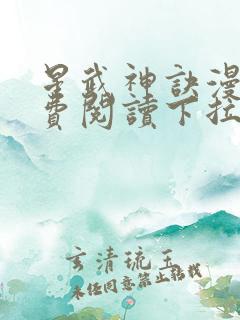 星武神訣漫
費閱讀下拉
玄清琉玉
未经同意禁止转载